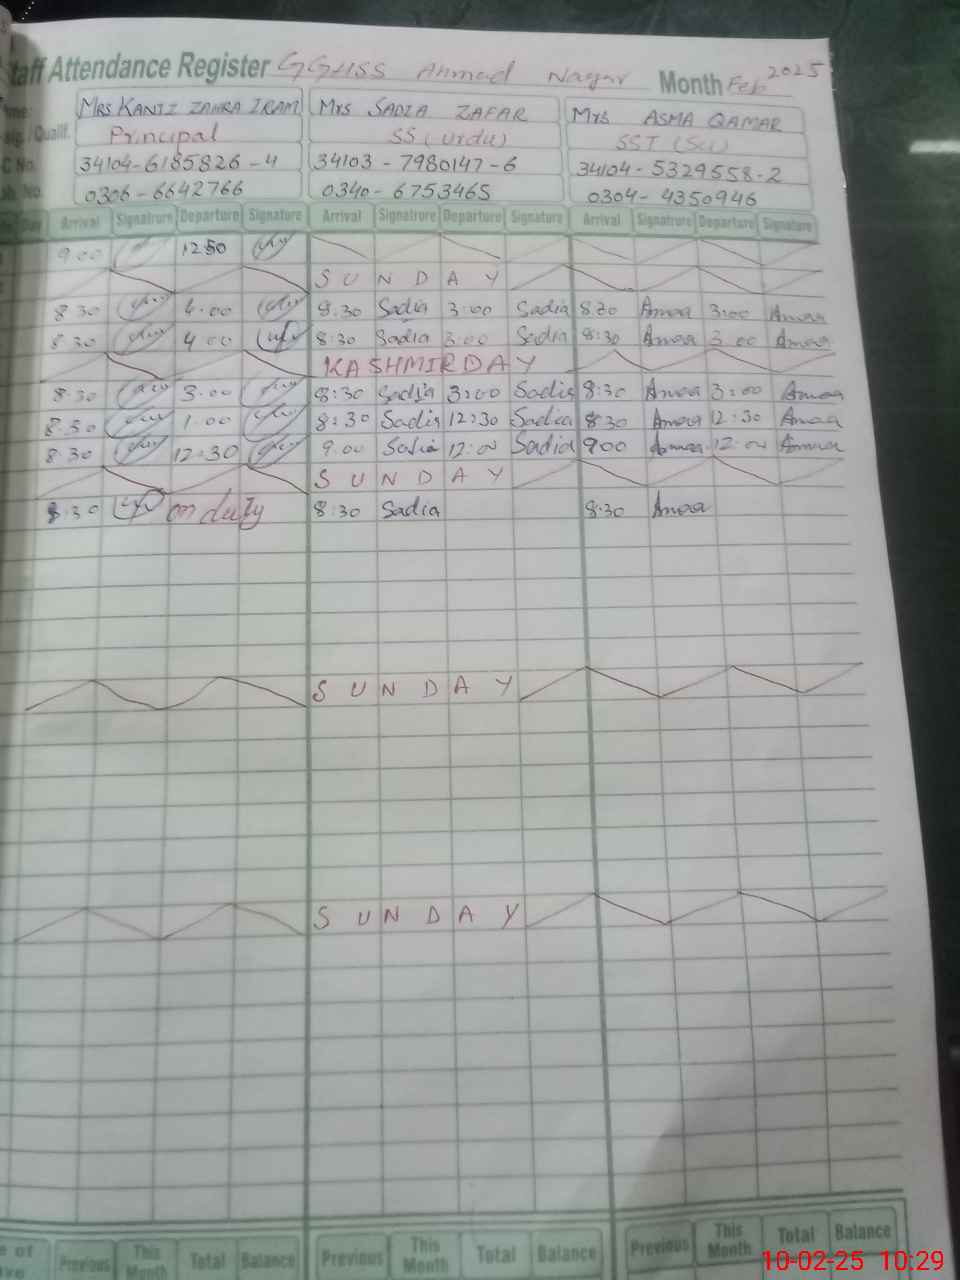 taff Attendance Register GGHSS Ahmad Nagar Month Feb 2025
MRS KANIZ ZAHRA IRAM Mrs SADIA ZAFAR Mrs ASMA QAMAR
Qualif. Principal SS (Urdu) SST (Sci)
C No. 34104-6185826-4 34103-7980147-6 34104-5329558-2
No. 0306-6642766 0340-6753465 0304-4350946
Day Arrival Signatrure Departure Signature Arrival Signatrure Departure Signature Arrival Signatrure Departure Signature
9.00 12 50
SUNDAY
8 30 4.00 8.30 Sadia 3:00 Sadia 8:30 Amaa 3:00 Amaa
8 30 4 00 8:30 Sadia 3:00 Sadia 8:30 Amaa 3 00 Amaa
KASHMIR DAY
8.30 3.00 8:30 Sadia 3:00 Sadia 8:30 Amaa 3:00 Amaa
8.30 1.00 8:30 Sadia 12:30 Sadia 8:30 Amaa 12:30 Amaa
8 30 12:30 9.00 Sadia 12:00 Sadia 900 Amaa 12:00 Amaa
SUNDAY
8:30 on duty 8:30 Sadia 8:30 Amaa
SUNDAY
SUNDAY
e of Previous This Month Total Balance Previous This Month Total Balance Previous This Month Total Balance
10-02-25 10:29